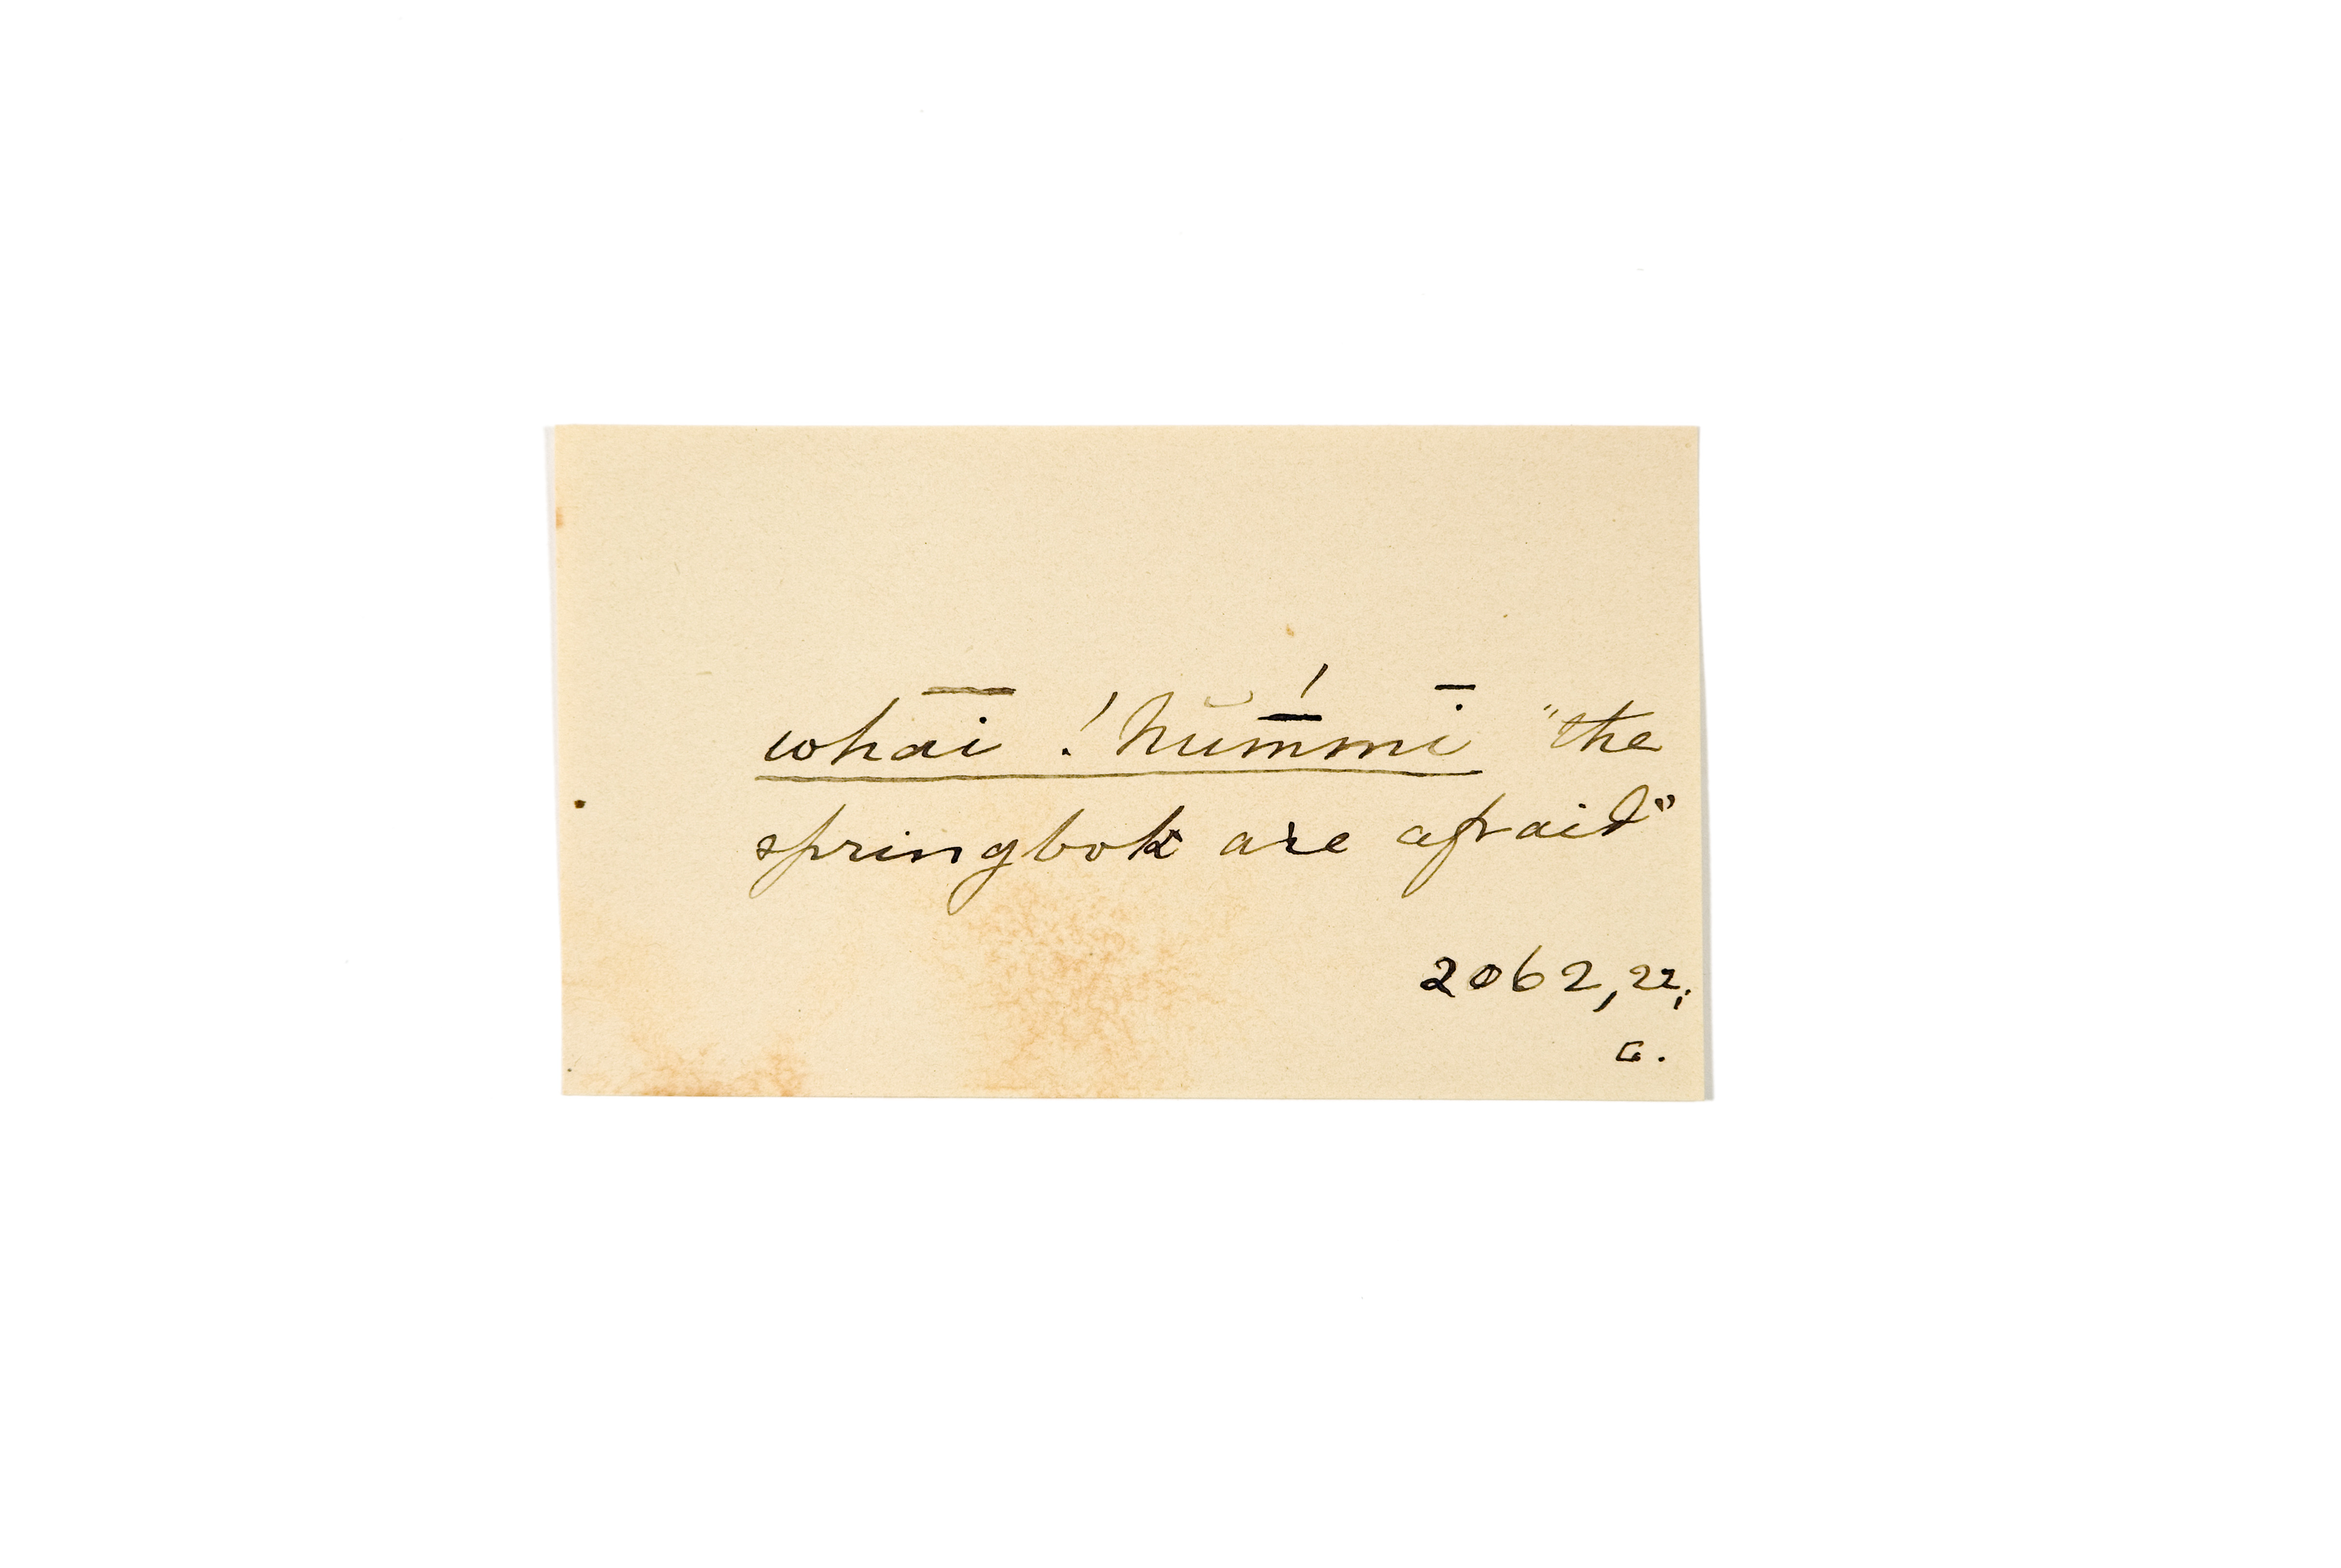 whāi !hŭm̄́mī "the
springbok are afraid"
2062, 22;
a.